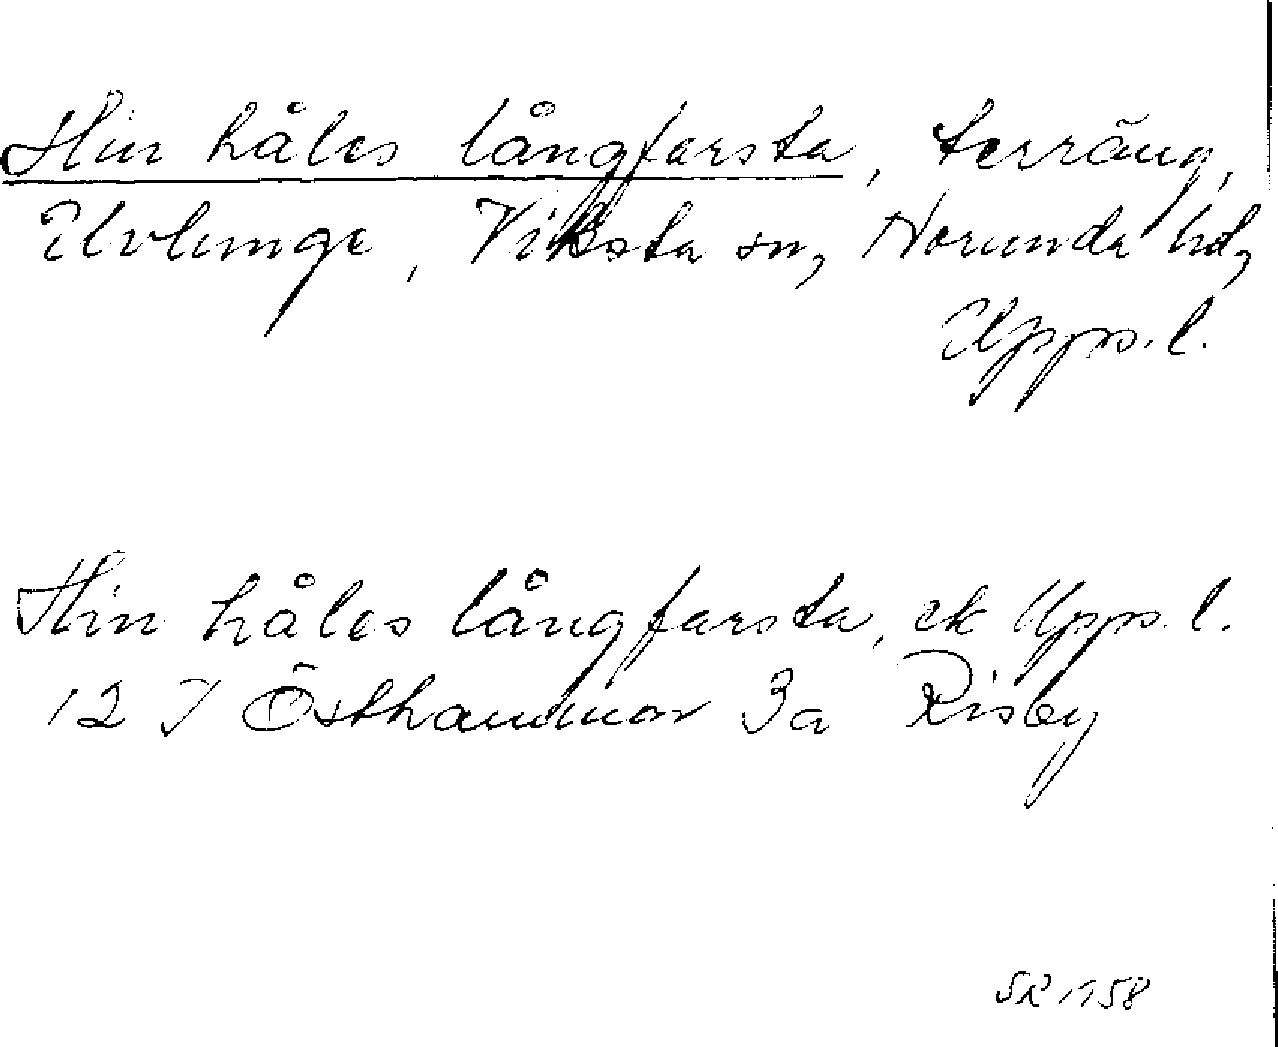 Hin håles långfarsta, terräng,
Uvlunge, Viksta sn, Norunda hd,
Upps. l.
Hin håles långfarsta, ek Upps. l.
12 I Östhammar 3a Risby
SR 1958